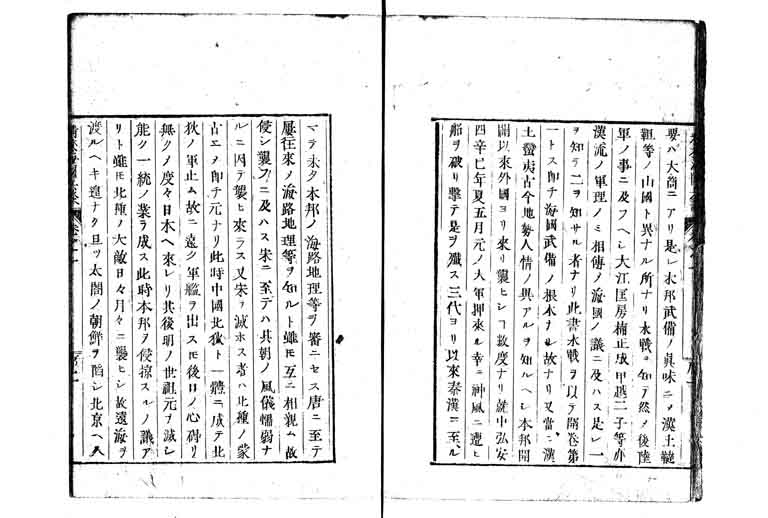 要ハ大商ニアリ是レ本邦武備ノ眞味ニメ漢土韃
靼等ノ山國ト異ナル所ナリ水戰ヲ知テ然ノ後陸
軍ノ事ニ及フヘシ大江匡房楠正成甲越二子等亦
漢流ノ軍理ノミ相傳ノ海國ノ議ニ及ハス是レ一
ヲ知テ二ヲ知サル者ナリ此書水戰ヲ以テ開卷第
一トス即チ海國武備ノ根本ナル故ナリ又當ニ漢
土蠻夷古今地勢人情ノ異アルヲ知ルヘシ本邦開
闢以來外國ヨリ來リ襲ヒシコ数度ナリ就中弘安
四辛巳年夏五月元ノ大軍押來ル幸ニ神風ニ遭ヒ
船ヲ破リ擊テ是ヲ殲ス三代ヨリ以來秦漢ニ至ル
マテ未タ本邦ノ海路地理等ヲ審ニセス唐ニ至テ
屢往來ノ海路地理等ヲ知ルト雖モ互ニ相親ム故
侵シ襲フニ及ハス宋ニ至テハ其朝ノ風儀懦弱ナ
ルニ因テ襲ヒ來ラス又宋ヲ滅ホス者ハ北種ノ蒙
古ニメ即チ元ナリ此時中國北狄ト一體ニ成テ北
狄ノ軍止ム故ニ遠ク軍艦ヲ出スモ後口ノ心碍リ
無クノ度々日本ヘ來レリ其後明ノ世祖元ヲ滅シ
能ク一統ノ業ヲ成ス此時本邦ヲ侵掠スルノ議ア
リト雖モ北種ノ大敵日々月々ニ襲ヒシ故遠海ヲ
渡ルヘキ遑ナク且ツ太閤ノ朝鮮ヲ陷シ北京ヘ入